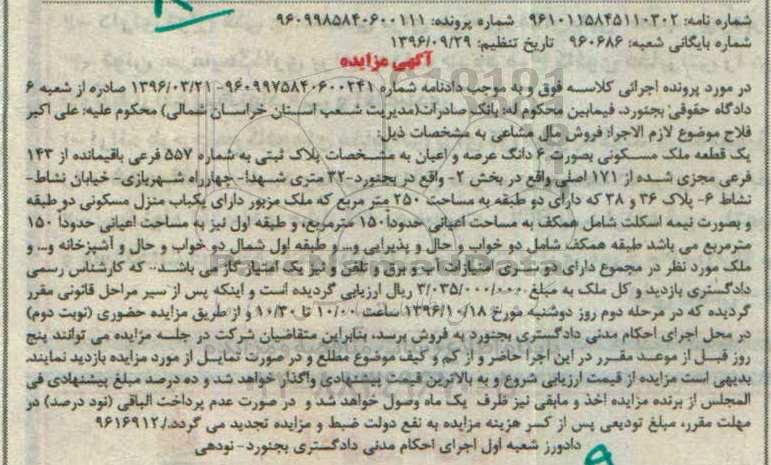 شماره نامه: ۹۶۱۰۱۱۵۸۴۵۱۱۰۳۰۲ شماره پرونده: ۹۶۰۹۹۸۵۸۴۰۶۰۰۱۱۱
شماره بایگانی شعبه: ۹۶۰۶۸۶ تاریخ تنظیم: ۱۳۹۶/۰۹/۲۹
آگهی مزایده
در مورد پرونده اجرائی کلاسه فوق و به موجب دادنامه شماره ۹۶۰۹۹۷۵۸۴۰۶۰۰۲۴۱- ۱۳۹۶/۰۳/۲۱ صادره از شعبه ۶
دادگاه حقوقی بجنورد، فیمابین محکوم له: بانک صادرات(مدیریت شعب استان خراسان شمالی) محکوم علیه: علی اکبر
فلاح موضوع لازم الاجرا: فروش مال مشاعی به مشخصات ذیل:
یک قطعه ملک مسکونی بصورت ۶ دانگ عرصه و اعیان به مشخصات پلاک ثبتی به شماره ۵۵۷ فرعی باقیمانده از ۱۴۳
فرعی مجزی شده از ۱۷۱ اصلی واقع در بخش ۲- واقع در بجنورد-۳۲ متری شهدا- چهارراه شهربازی- خیابان نشاط-
نشاط ۶- پلاک ۳۶ و ۳۸ که دارای دو طبقه به مساحت ۲۵۰ متر مربع که ملک مزبور دارای یکباب منزل مسکونی دو طبقه
و بصورت نیمه اسکلت شامل همکف به مساحت اعیانی حدوداً ۱۵۰ مترمربع، و طبقه اول نیز به مساحت اعیانی حدوداً ۱۵۰
مترمربع می باشد طبقه همکف شامل دو خواب و حال و پذیرایی و... و طبقه اول شمال دو خواب و حال و آشپزخانه و... و
ملک مورد نظر در مجموع دارای دو سری امتیازات آب و برق و تلفن و نیز یک امتیاز گاز می باشد.. که کارشناس رسمی
دادگستری بازدید و کل ملک به مبلغ ۳/۰۳۵/۰۰۰/۰۰۰ ریال ارزیابی گردیده است و اینکه پس از سیر مراحل قانونی مقرر
گردیده که در مرحله دوم روز دوشنبه مورخ ۱۳۹۶/۱۰/۱۸ ساعت ۱۰/۰۰ تا ۱۰/۳۰ و از طریق مزایده حضوری (نوبت دوم)
در محل اجرای احکام مدنی دادگستری بجنورد به فروش برسد، بنابراین متقاضیان شرکت در جلسه مزایده می توانند پنج
روز قبل از موعد مقرر در این اجرا حاضر و از کم و کیف موضوع مطلع و در صورت تمایل از مورد مزایده بازدید نمایند.
بدیهی است مزایده از قیمت ارزیابی شروع و به بالاترین قیمت پیشنهادی واگذار خواهد شد و ده درصد مبلغ پیشنهادی فی
المجلس از برنده مزایده اخذ و مابقی نیز ظرف یک ماه وصول خواهد شد و در صورت عدم پرداخت الباقی (نود درصد) در
مهلت مقرر، مبلغ تودیعی پس از کسر هزینه مزایده به نفع دولت ضبط و مزایده تجدید می گردد./۹۶۱۶۹۱۲
دادورز شعبه اول اجرای احکام مدنی دادگستری بجنورد- نودهی